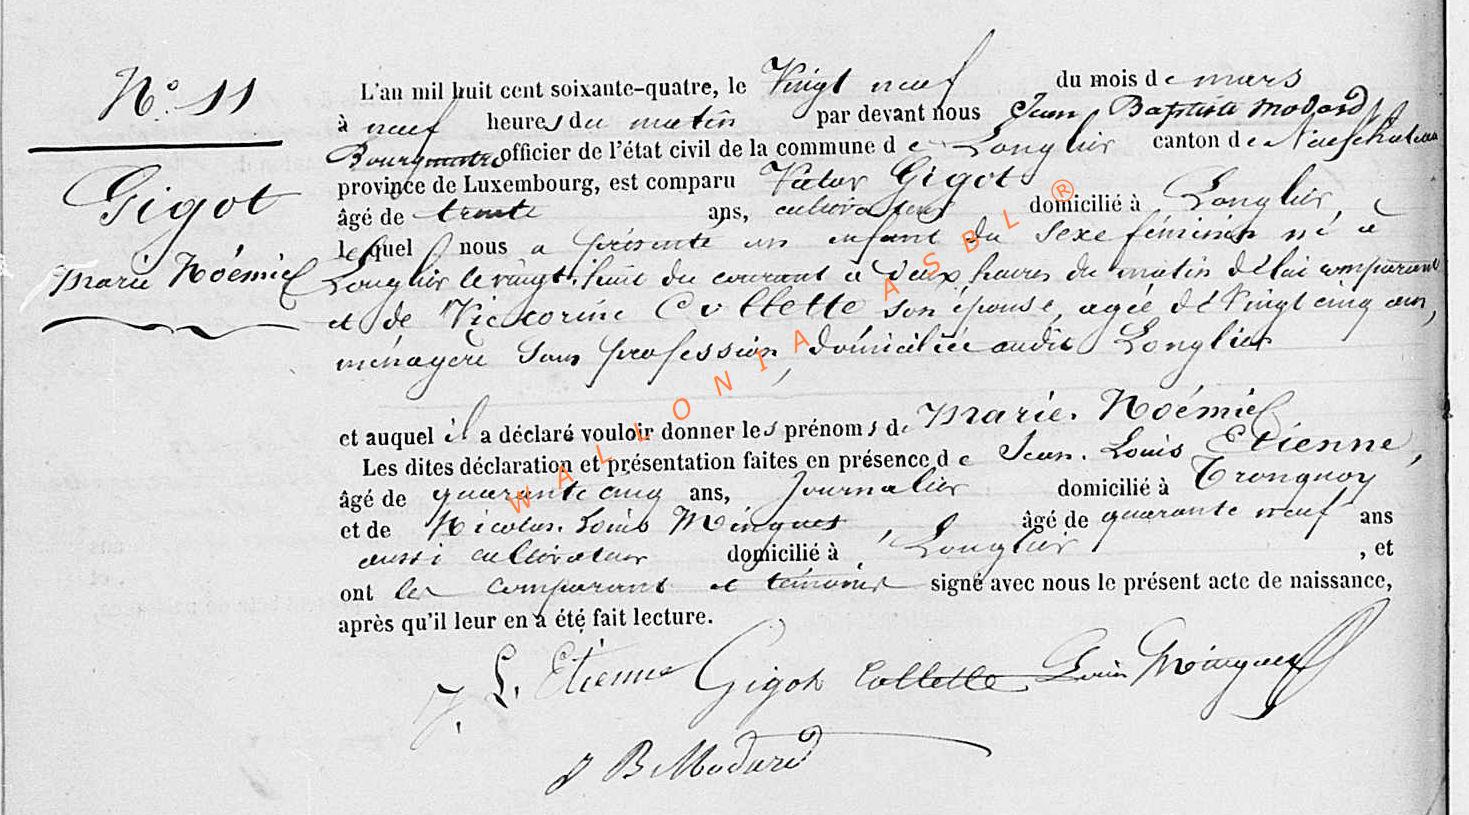 N° 11
Gigot
Marie Noémie
L'an mil huit cent soixante-quatre, le Vingt neuf du mois de mars
à neuf heures du matin par devant nous Jean Baptiste Modard
Bourgmestre officier de l'état civil de la commune de Longlier canton de Neufchateau
province de Luxembourg, est comparu Victor Gigot
âgé de trente ans, cultivateur domicilié à Longlier,
lequel nous a présenté un enfant du sexe féminin né à
Longlier le vingt huit du courant à deux heures du matin de lui comparant
et de Victorine Collette son épouse, agée de Vingt cinq ans,
ménagère sans profession, domiciliée audit Longlier
et auquel il a déclaré vouloir donner les prénoms de Marie. Noémie
Les dites déclaration et présentation faites en présence de Jean. Louis Etienne,
âgé de quarante cinq ans, Journalier domicilié à Tronquoy
et de Nicolas. Louis Minguet, âgé de quarante neuf ans
aussi cultivateur domicilié à Longlier, et
ont les comparant et témoins signé avec nous le présent acte de naissance,
après qu'il leur en a été fait lecture.
J. L. Etienne Gigot Collette Louis Minguet
J B Modard
WALLONIA ASBL ®